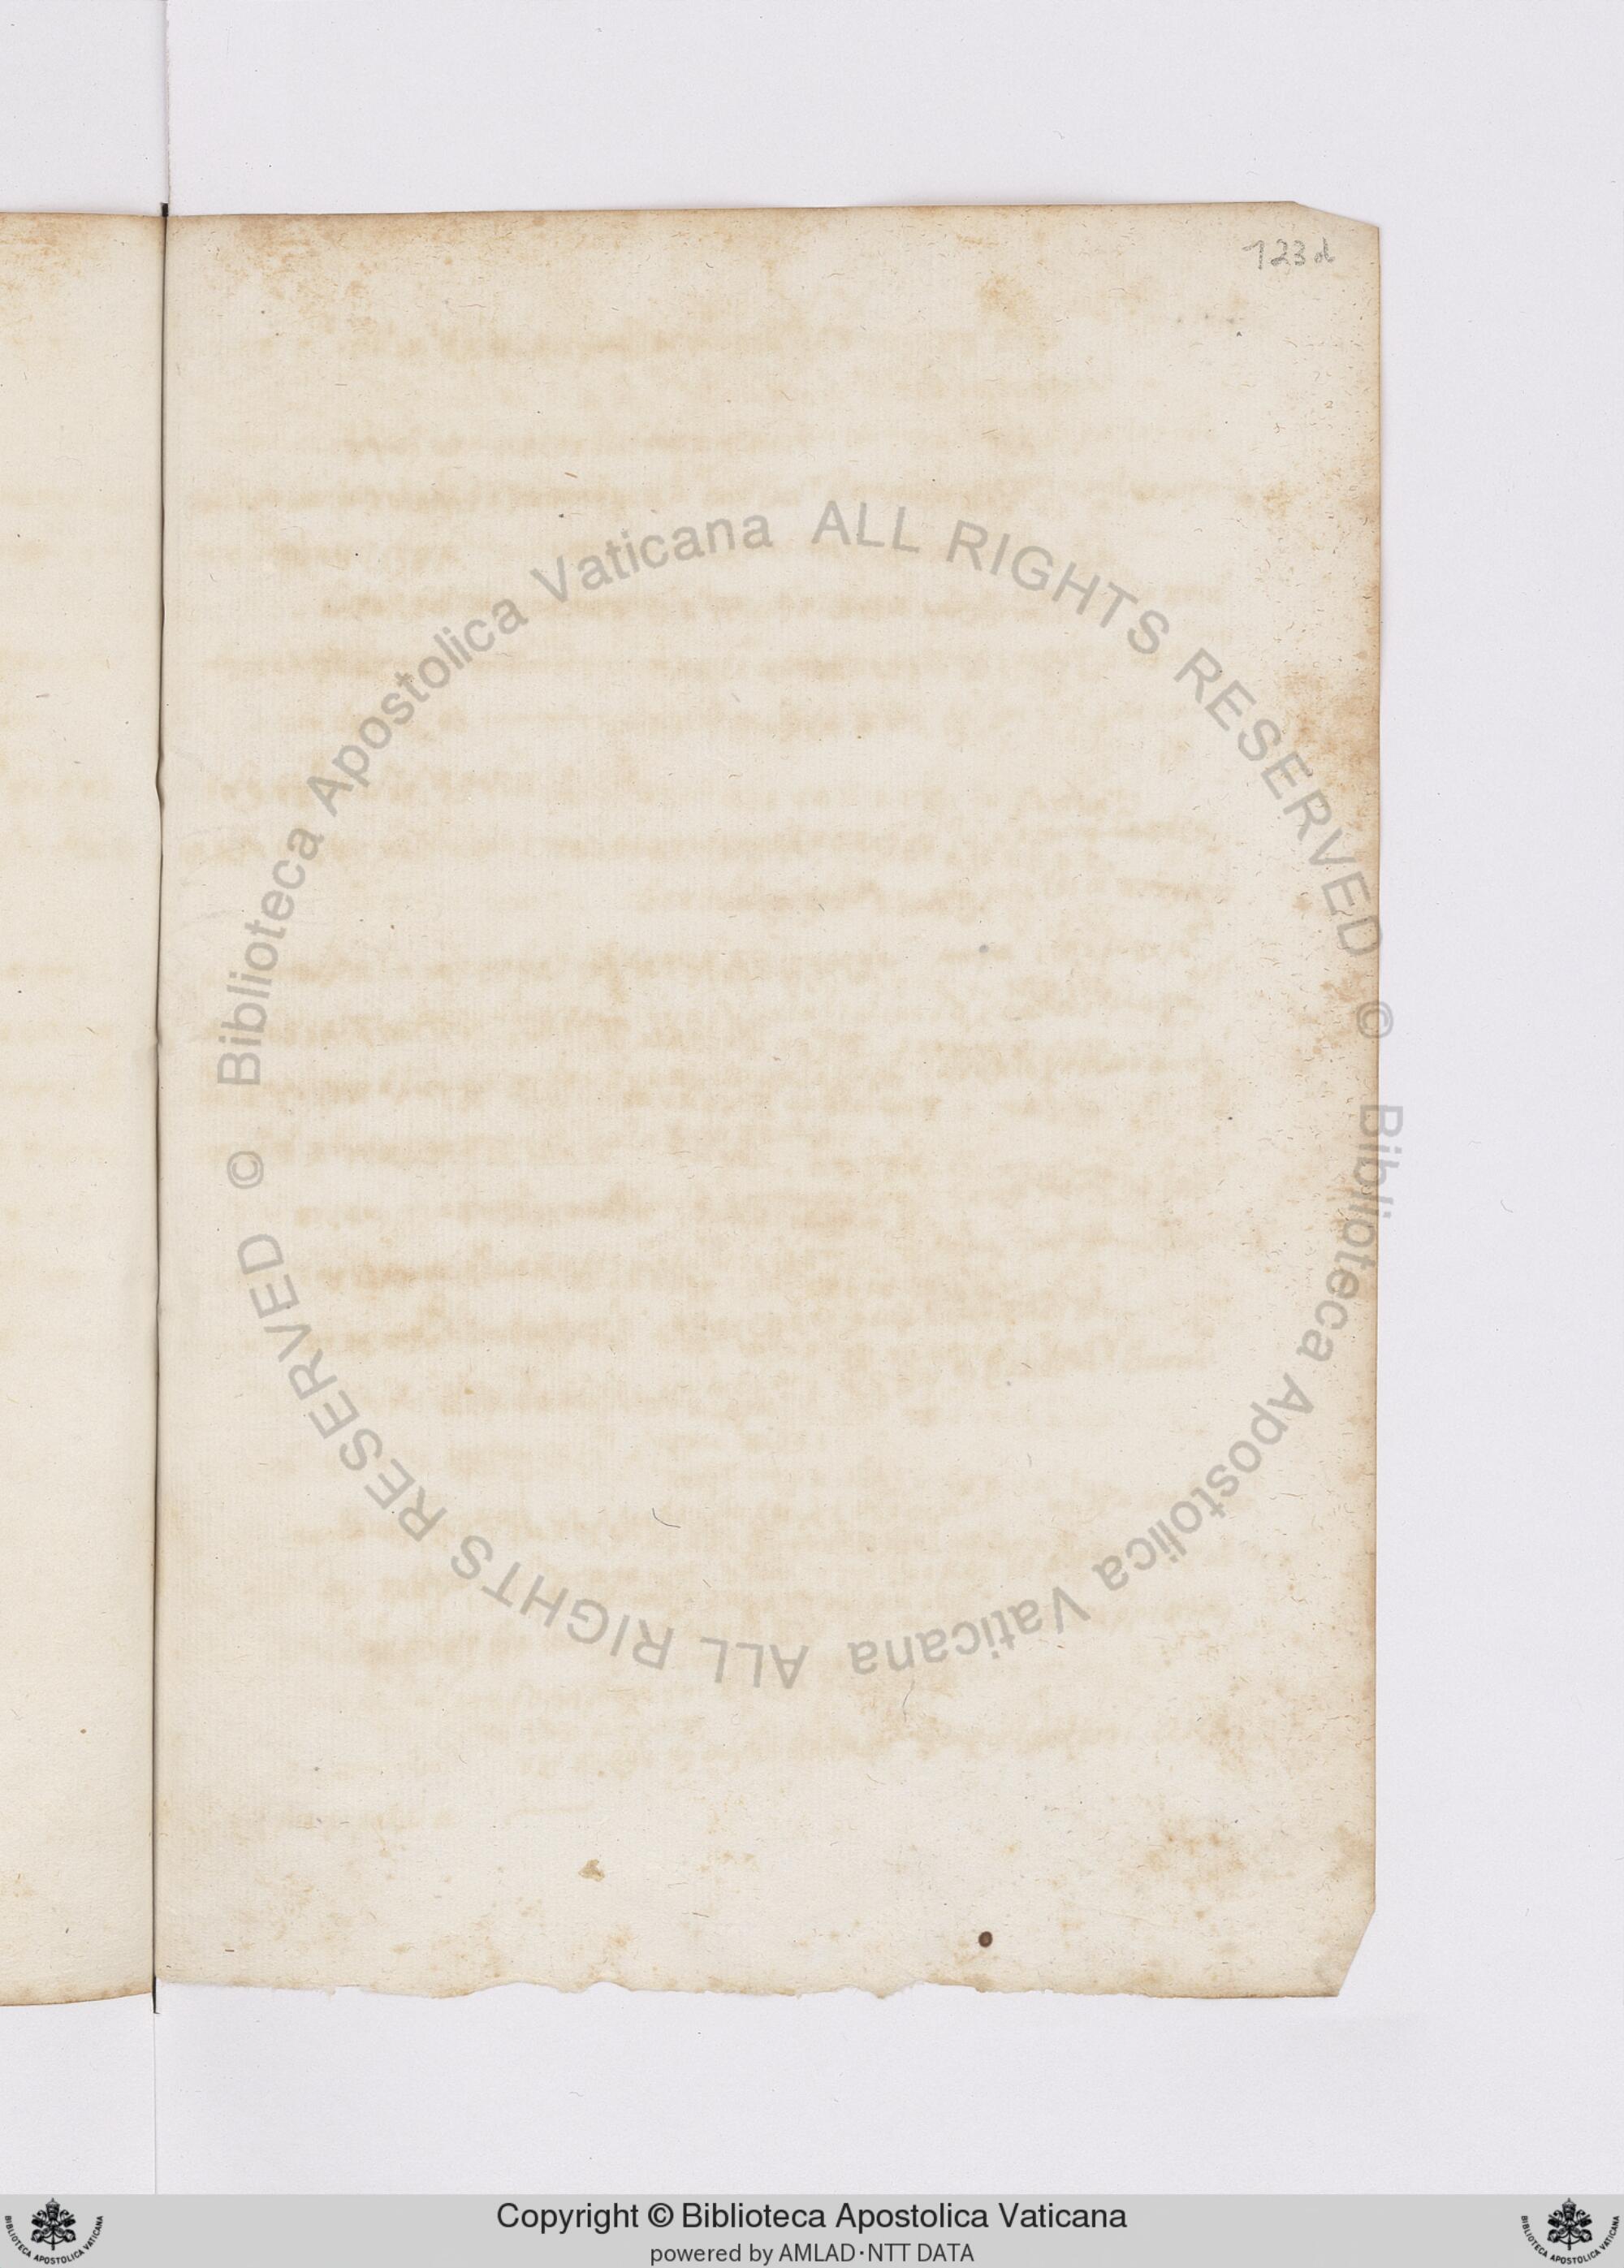 123d
© Biblioteca Apostolica Vaticana ALL RIGHTS RESERVED
© Biblioteca Apostolica Vaticana ALL RIGHTS RESERVED
Copyright © Biblioteca Apostolica Vaticana
powered by AMLAD·NTT DATA
BIBLIOTECA APOSTOLICA VATICANA
BIBLIOTECA APOSTOLICA VATICANA